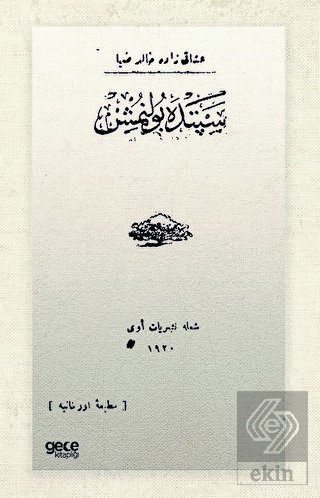 عشاقی زاده خالد ضیا
سپتده بولنمش
شعله نشریات أوی
١٩٢٠
[ مطبعهٔ اورخانیه ]
gece
kitaplığı
ekin